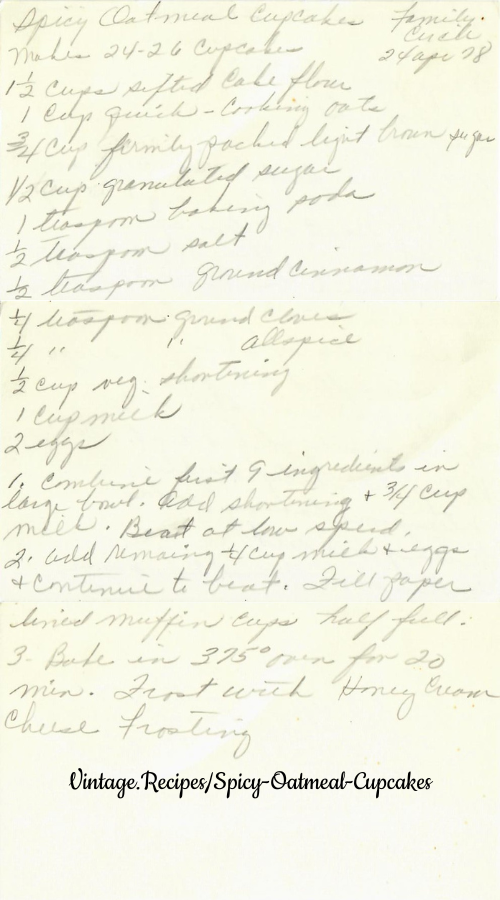 Spicy Oatmeal Cupcakes Family
Circle
Makes 24-26 Cupcakes 24 apr 78
1 1/2 cups sifted Cake flour
1 cup quick-cooking oats
3/4 cup firmly packed light brown sugar
1/2 cup granulated sugar
1 teaspoon baking soda
1/2 teaspoon salt
1/2 teaspoon ground cinnamon
1/4 teaspoon ground cloves
1/4 " " allspice
1/2 cup veg. shortening
1 cup milk
2 eggs
1. Combine first 9 ingredients in
large bowl. Add shortening + 3/4 cup
milk. Beat at low speed.
2. add remaing 1/4 cup milk + eggs
+ continue to beat. Fill paper
lined muffin cups half full.
3- Bake in 375° oven for 20
min. Frost with Honey Cream
Cheese Frosting
Vintage.Recipes/Spicy-Oatmeal-Cupcakes